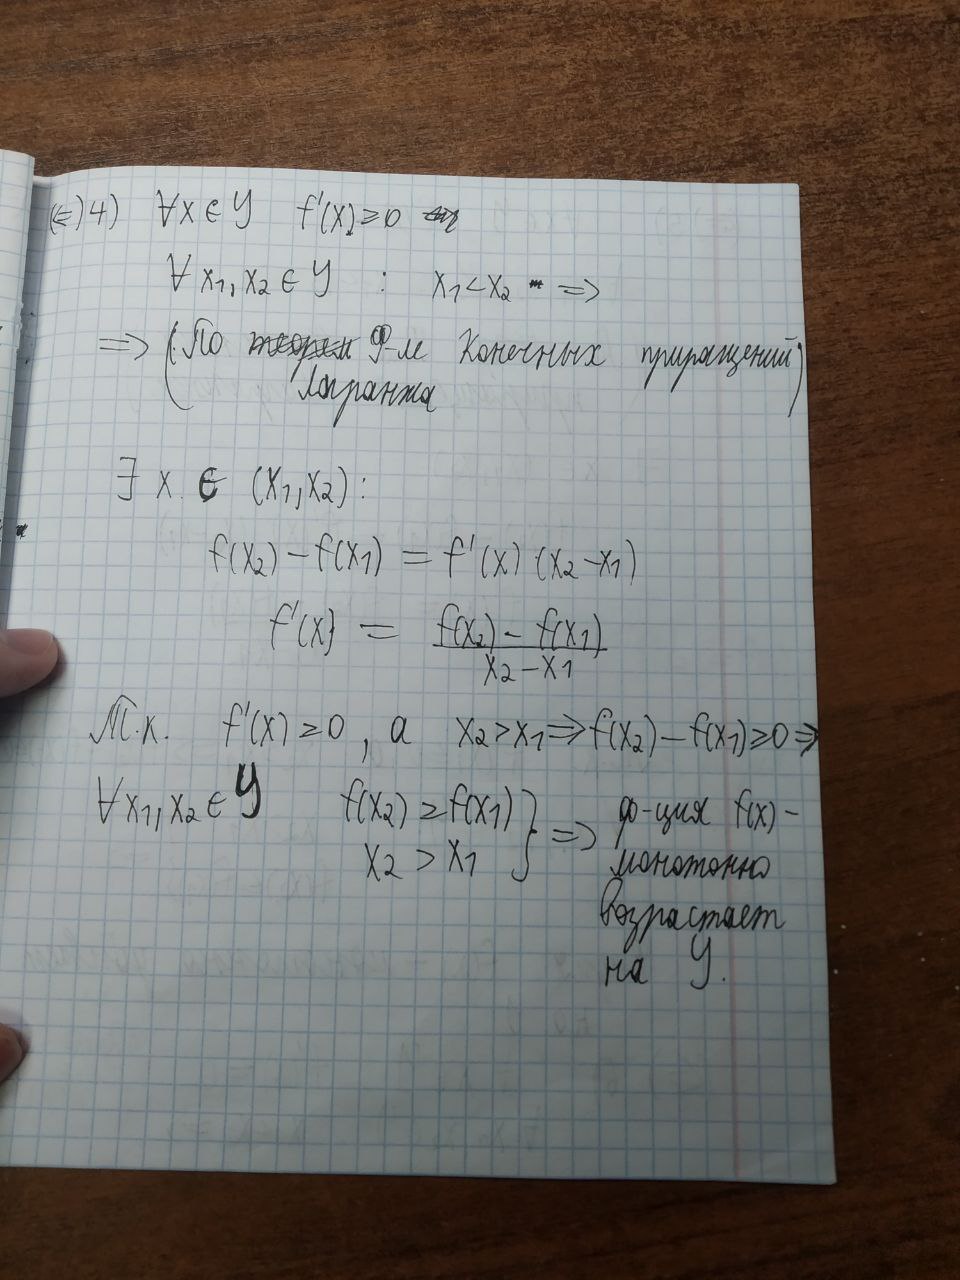 (⇐) 4) ∀x ∈ У f'(x) ≥ 0
∀ x₁, x₂ ∈ У : x₁ < x₂ ⇒
⇒ (По ф-ле Конечных приращений
Лагранжа)
∃ x ∈ (x₁, x₂) :
f(x₂) − f(x₁) = f'(x) (x₂ − x₁)
f'(x) = (f(x₂) − f(x₁)) / (x₂ − x₁)
Т.к. f'(x) ≥ 0, а x₂ > x₁ ⇒ f(x₂) − f(x₁) ≥ 0 ⇒
∀ x₁, x₂ ∈ У f(x₂) ≥ f(x₁) } ⇒ ф-ция f(x) −
x₂ > x₁ монотонно
возрастает
на У.